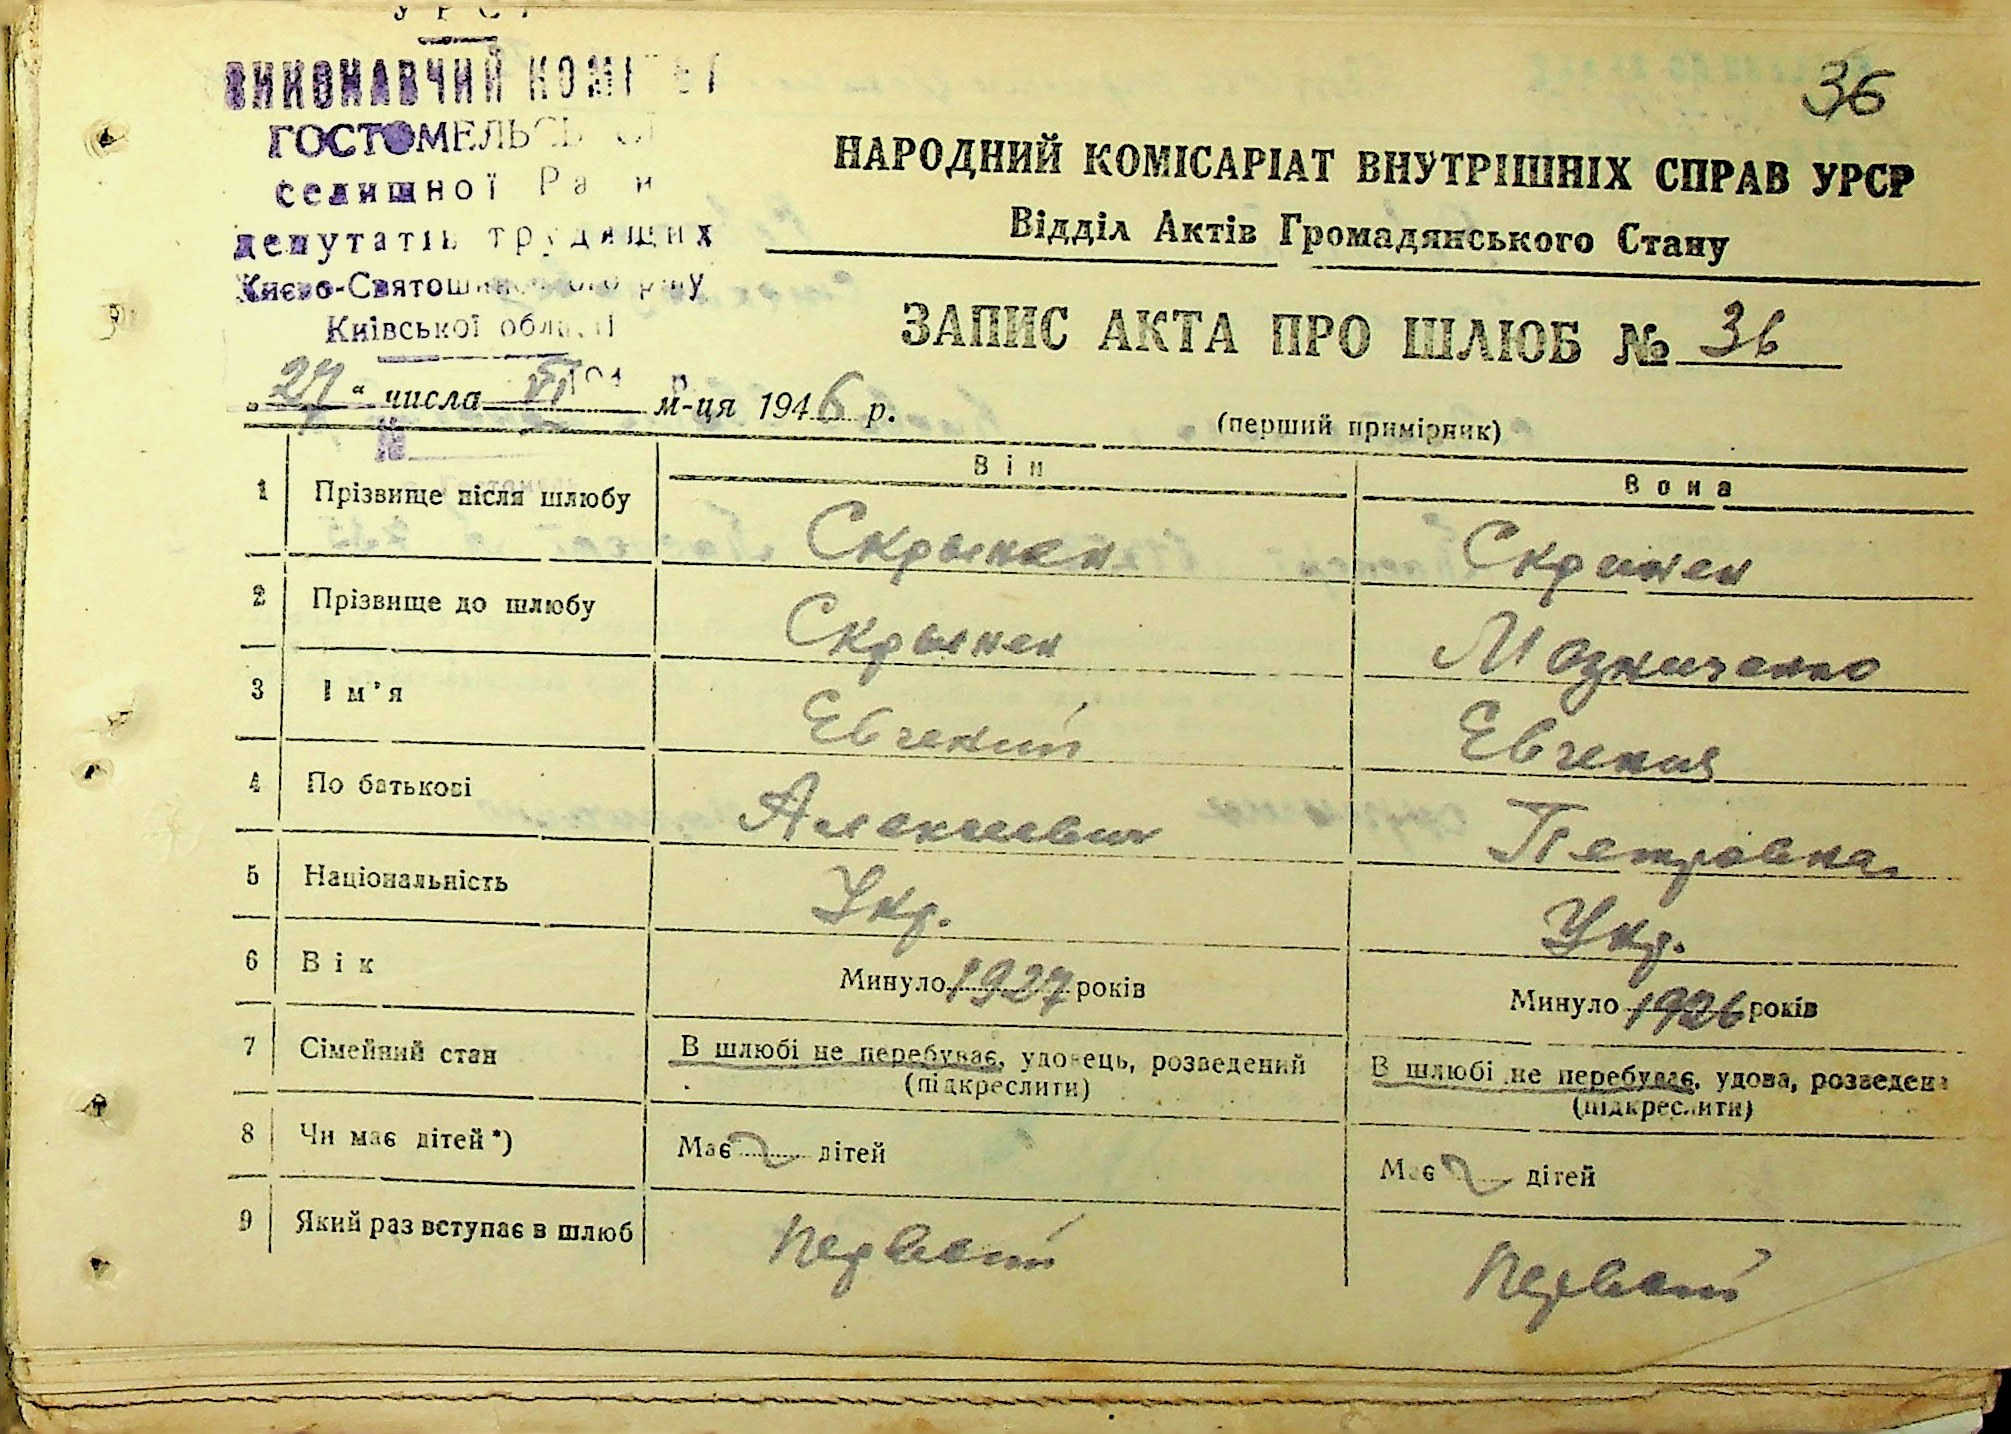 УРСР
36
ВИКОНАВЧИЙ КОМІТЕТ
ГОСТОМЕЛЬСЬКОЇ
селищної Ради
депутатів трудящих
Києво-Святошинського р-ну
Київської області
НАРОДНИЙ КОМІСАРІАТ ВНУТРІШНІХ СПРАВ УРСР
Відділ Актів Громадянського Стану
ЗАПИС АКТА ПРО ШЛЮБ № 36
„27“ числа VI м-ця 1946 р.
(перший примірник)
№
Він
Вона
1 Прізвище після шлюбу Скрынен Скринен
2 Прізвище до шлюбу Скрынен Мозниченко
3 Ім'я Евгений Евгения
4 По батькові Алексеевич Петровна
5 Національність Укр. Укр.
6 Вік Минуло 1927 років Минуло 1926 років
7 Сімейний стан В шлюбі не перебуває, удовець, розведений В шлюбі не перебуває, удова, розведена
(підкреслити) (підкреслити)
8 Чи має дітей*) Має дітей Має дітей
9 Який раз вступає в шлюб первый первый